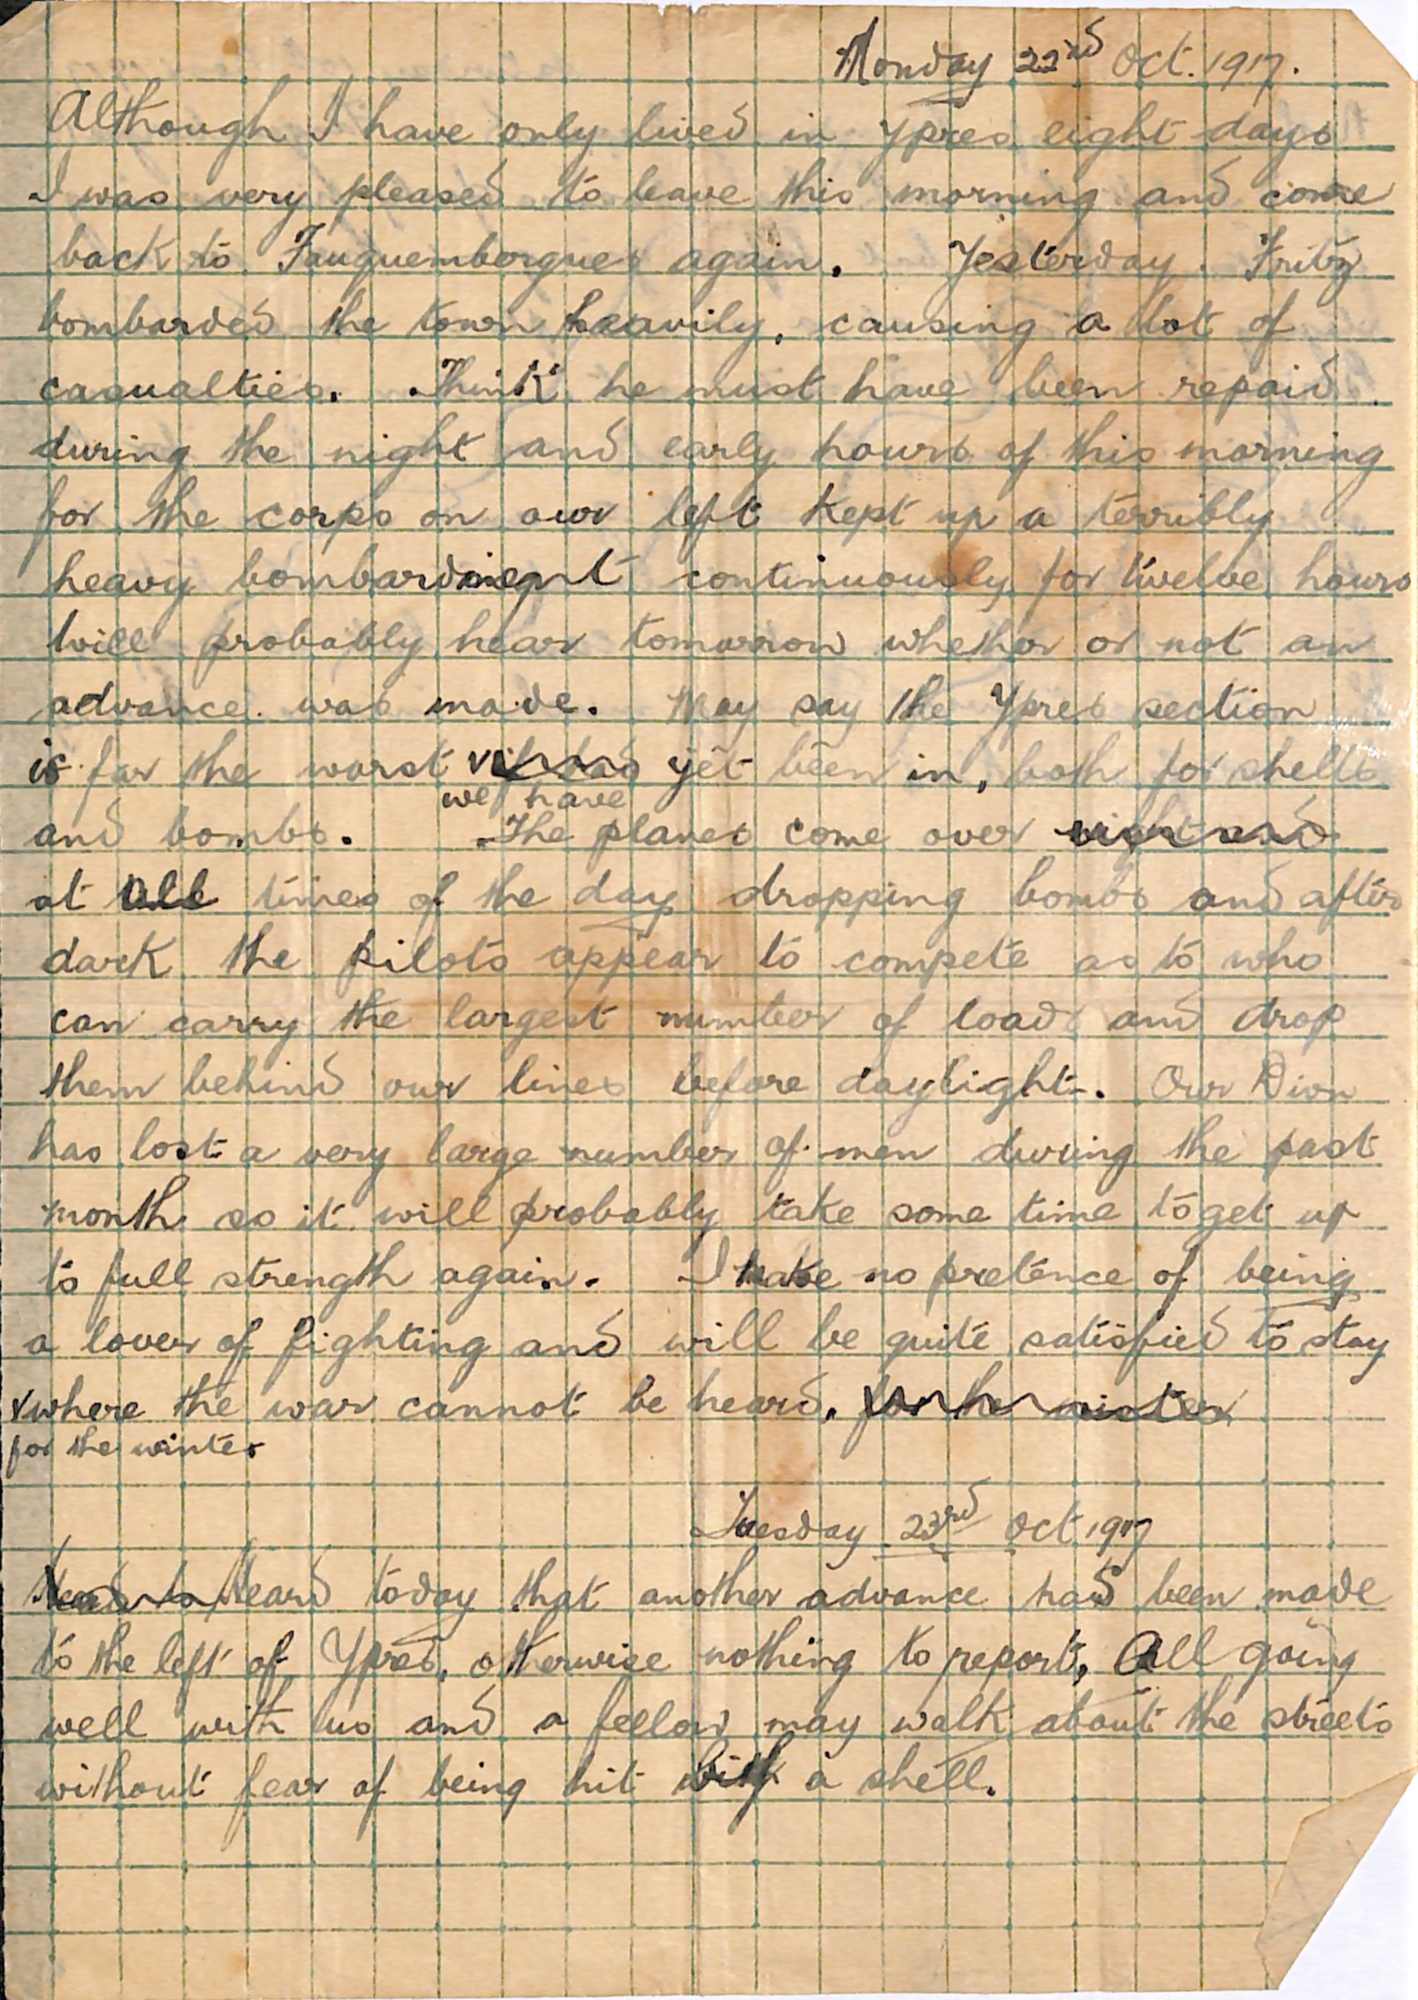 Monday 22nd Oct. 1917.
Although I have only lived in Ypres eight days
I was very pleased to leave this morning and come
back to Fauquembergues again. Yesterday Fritz
bombarded the town heavily, causing a lot of
casualties. Think he must have been repaid
during the night and early hours of this morning
for the corps on our left kept up a terribly
heavy bombardment continuously for twelve hours
Will probably hear tomorrow whether or not an
advance was made. May say the Ypres section
is far the worst yet been in, both for shells
we have
and bombs. The planes come over night and
at all times of the day dropping bombs and after
dark the pilots appear to compete as to who
can carry the largest number of loads and drop
them behind our lines before daylight. Our Divn
has lost a very large number of men during the past
month so it will probably take some time to get up
to full strength again. I make no pretence of being
a lover of fighting and will be quite satisfied to stay
where the war cannot be heard, for the winter
for the winter
Tuesday 23rd Oct 1917
Heard today that another advance had been made
to the left of Ypres, otherwise nothing to report, All going
well with us and a fellow may walk about the streets
without fear of being hit with a shell.